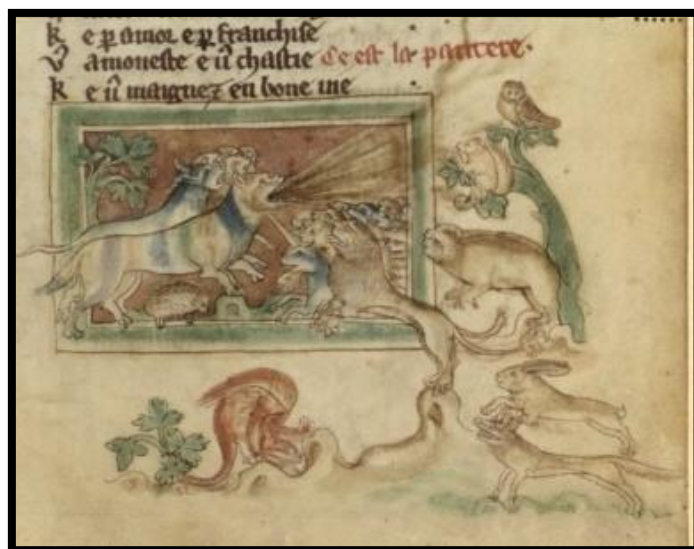 k e p amor e p franchise
v amoneste e ū chastie Ce est la pantere.
k e ū maignez en bone uie